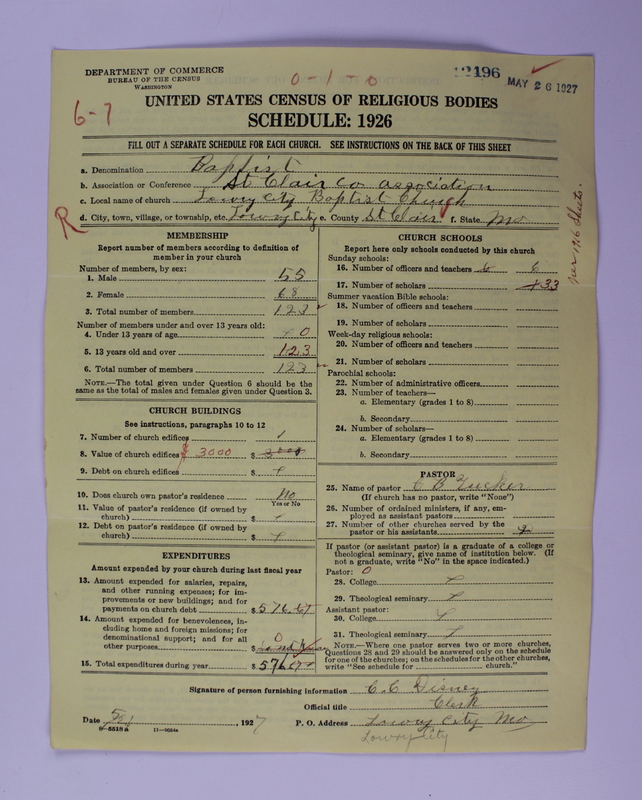 DEPARTMENT OF COMMERCE
BUREAU OF THE CENSUS
WASHINGTON
0-1-0
12196
MAY 26 1927
6-7
UNITED STATES CENSUS OF RELIGIOUS BODIES
SCHEDULE: 1926
FILL OUT A SEPARATE SCHEDULE FOR EACH CHURCH. SEE INSTRUCTIONS ON THE BACK OF THIS SHEET
a. Denomination Baptist
b. Association or Conference St Clair Co association
c. Local name of church Lowry City Baptist Church
R
d. City, town, village, or township, etc. Lowry City e. County St Clair f. State Mo
per 1916 Sheets.
MEMBERSHIP
Report number of members according to definition of
member in your church
Number of members, by sex:
1. Male 55
2. Female 68
3. Total number of members 123
Number of members under and over 13 years old:
4. Under 13 years of age 0
5. 13 years old and over 123
6. Total number of members 123
NOTE.—The total given under Question 6 should be the
same as the total of males and females given under Question 3.
CHURCH BUILDINGS
See instructions, paragraphs 10 to 12
7. Number of church edifices 1
8. Value of church edifices $ 3000 $ 3000
9. Debt on church edifices $
10. Does church own pastor's residence No
Yes or No
11. Value of pastor's residence (if owned by
church) $
12. Debt on pastor's residence (if owned by
church) $
EXPENDITURES
Amount expended by your church during last fiscal year
13. Amount expended for salaries, repairs,
and other running expenses; for im-
provements or new buildings; and for
payments on church debt $ 576.67
14. Amount expended for benevolences, in-
cluding home and foreign missions; for
denominational support; and for all
other purposes $ 0
15. Total expenditures during year $ 576
CHURCH SCHOOLS
Report here only schools conducted by this church
Sunday schools:
16. Number of officers and teachers 6 6
17. Number of scholars 33
Summer vacation Bible schools:
18. Number of officers and teachers
19. Number of scholars
Week-day religious schools:
20. Number of officers and teachers
21. Number of scholars
Parochial schools:
22. Number of administrative officers
23. Number of teachers—
a. Elementary (grades 1 to 8)
b. Secondary
24. Number of scholars—
a. Elementary (grades 1 to 8)
b. Secondary
PASTOR
25. Name of pastor C B Zucker
(If church has no pastor, write "None")
26. Number of ordained ministers, if any, em-
ployed as assistant pastors
27. Number of other churches served by the
pastor or his assistants
If pastor (or assistant pastor) is a graduate of a college or
theological seminary, give name of institution below. (If
not a graduate, write "No" in the space indicated.)
Pastor: 0
28. College
29. Theological seminary
Assistant pastor:
30. College
31. Theological seminary
NOTE.—Where one pastor serves two or more churches,
Questions 28 and 29 should be answered only on the schedule
for one of the churches; on the schedules for the other churches,
write "See schedule for church."
Signature of person furnishing information C. C Disney
Official title Clerk
Date 5/21, 1927 P. O. Address Lowry City Mo
8-5518a 11-9084a
Lowry City